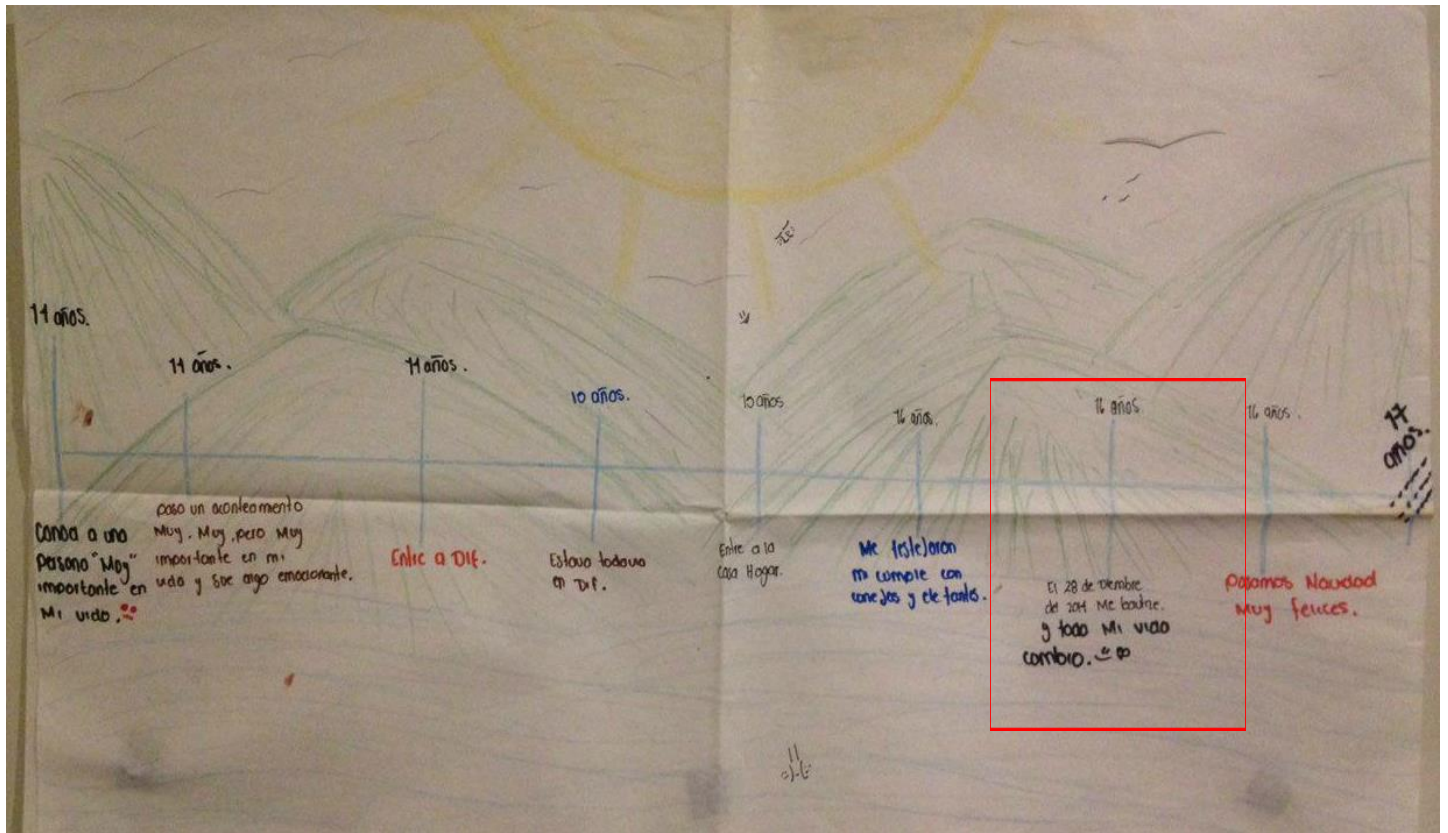 11 años.
conoci a una
persona "Muy"
importante en
Mi vida.
11 años.
paso un acontecimento
Muy, Muy, pero Muy
importante en mi
vida y fue algo emocionante.
11 años.
Entre a DIF.
10 años.
Estava todavia
en DIF.
10 años
Entre a la
casa Hogar.
16 años.
Me festejaron
mi cumple con
conejos y elefantes.
16 años
El 28 de
del 2014 Me bautize.
y toda Mi vida
cambio.
16 años.
pasamos Navidad
Muy felices.
17
años.